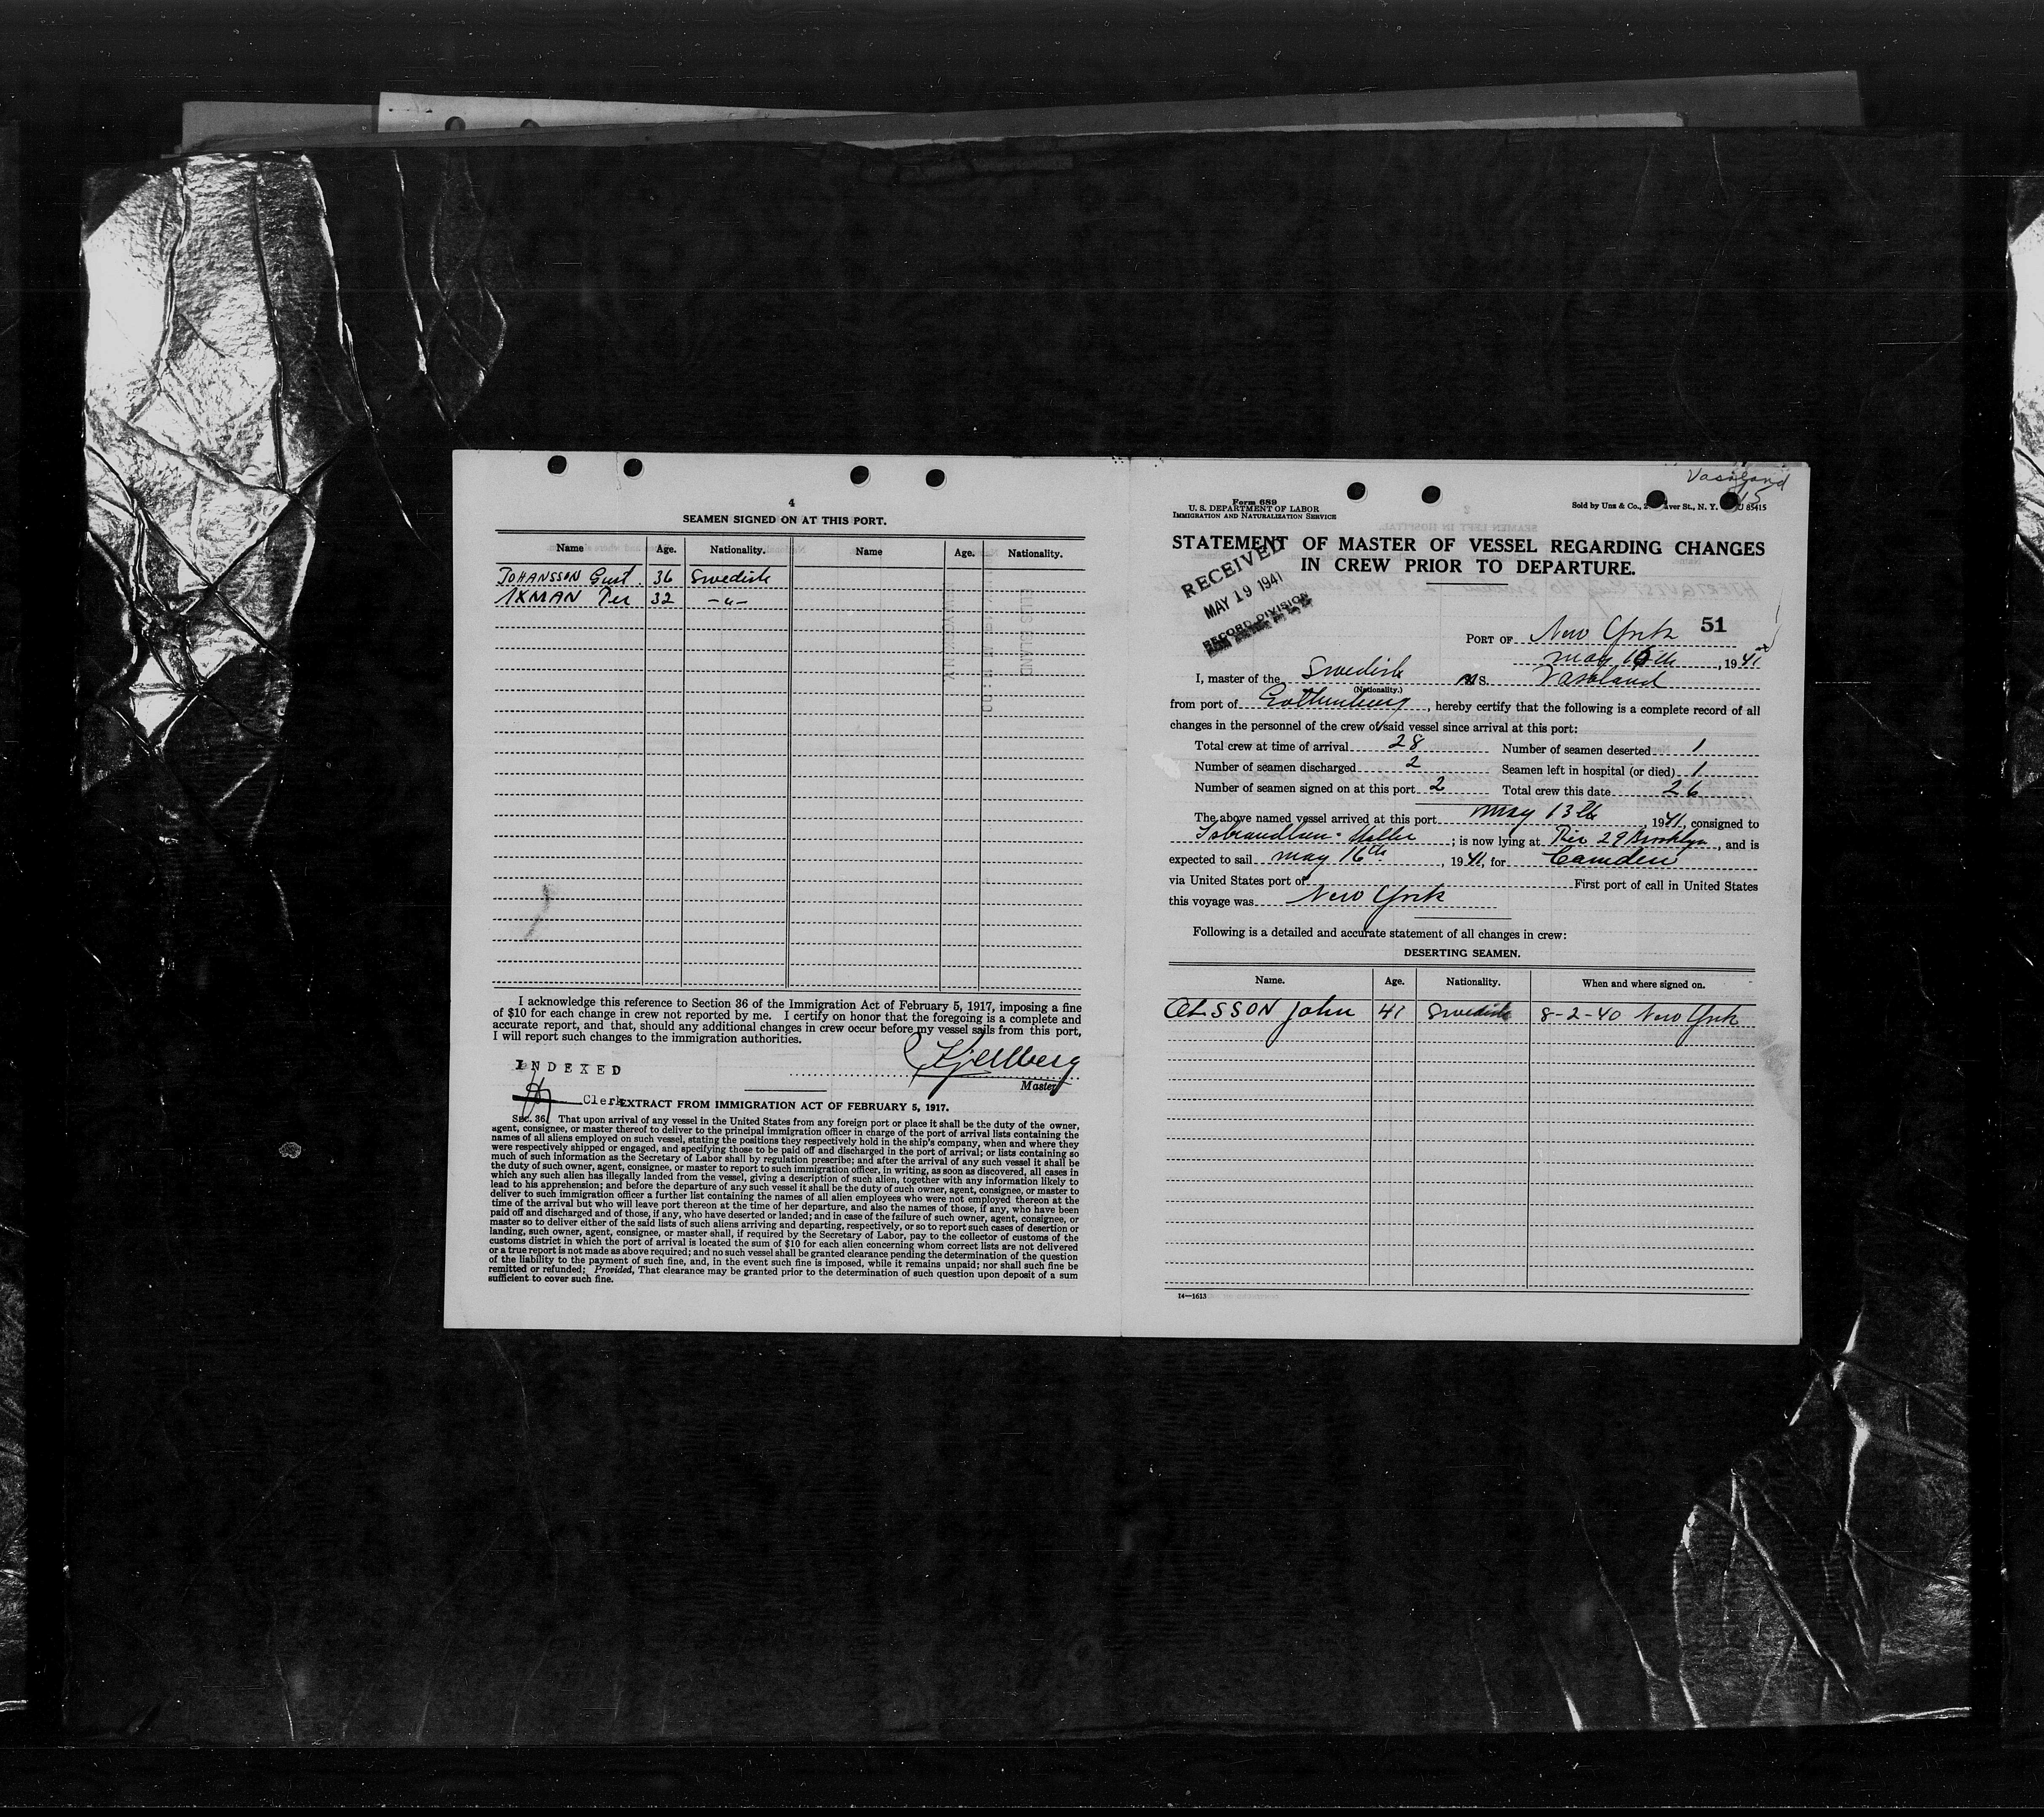 4
SEAMEN SIGNED ON AT THIS PORT.
Name Age. Nationality. Name Age. Nationality.
JOHANSSON Gust. 36 Swedish
AXMAN Per 32 -"-
I acknowledge this reference to Section 36 of the Immigration Act of February 5, 1917, imposing a fine
of $10 for each change in crew not reported by me. I certify on honor that the foregoing is a complete and
accurate report, and that, should any additional changes in crew occur before my vessel sails from this port,
I will report such changes to the immigration authorities.
Kjellberg
Master
INDEXED
Clerk
EXTRACT FROM IMMIGRATION ACT OF FEBRUARY 5, 1917.
SEC. 36. That upon arrival of any vessel in the United States from any foreign port or place it shall be the duty of the owner,
agent, consignee, or master thereof to deliver to the principal immigration officer in charge of the port of arrival lists containing the
names of all aliens employed on such vessel, stating the positions they respectively hold in the ship's company, when and where they
were respectively shipped or engaged, and specifying those to be paid off and discharged in the port of arrival; or lists containing so
much of such information as the Secretary of Labor shall by regulation prescribe; and after the arrival of any such vessel it shall be
the duty of such owner, agent, consignee, or master to report to such immigration officer, in writing, as soon as discovered, all cases in
which any such alien has illegally landed from the vessel, giving a description of such alien, together with any information likely to
lead to his apprehension; and before the departure of any such vessel it shall be the duty of such owner, agent, consignee, or master to
deliver to such immigration officer a further list containing the names of all alien employees who were not employed thereon at the
time of the arrival but who will leave port thereon at the time of her departure, and also the names of those, if any, who have been
paid off and discharged and of those, if any, who have deserted or landed; and in case of the failure of such owner, agent, consignee, or
master so to deliver either of the said lists of such aliens arriving and departing, respectively, or so to report such cases of desertion or
landing, such owner, agent, consignee, or master shall, if required by the Secretary of Labor, pay to the collector of customs of the
customs district in which the port of arrival is located the sum of $10 for each alien concerning whom correct lists are not delivered
or a true report is not made as above required; and no such vessel shall be granted clearance pending the determination of the question
of the liability to the payment of such fine, and, in the event such fine is imposed, while it remains unpaid; nor shall such fine be
remitted or refunded; Provided, That clearance may be granted prior to the determination of such question upon deposit of a sum
sufficient to cover such fine.
Vasaland
15
Form 689
U. S. DEPARTMENT OF LABOR
IMMIGRATION AND NATURALIZATION SERVICE
Sold by Unz & Co., aver St., N. Y. U 85415
STATEMENT OF MASTER OF VESSEL REGARDING CHANGES
IN CREW PRIOR TO DEPARTURE.
RECEIVED
MAY 19 1941
RECORD DIVISION
PORT OF New York 51
May 16th, 1941
I, master of the Swedish M S. Vasaland
(Nationality.)
from port of Gothenburg, hereby certify that the following is a complete record of all
changes in the personnel of the crew of said vessel since arrival at this port:
Total crew at time of arrival 28 Number of seamen deserted 1
Number of seamen discharged 2 Seamen left in hospital (or died) 1
Number of seamen signed on at this port 2 Total crew this date 26
The above named vessel arrived at this port May 13th, 1941, consigned to
Isbrandtsen-Moller; is now lying at Pier 29 Brooklyn, and is
expected to sail May 16th, 1941, for Camden
via United States port of First port of call in United States
this voyage was New York
Following is a detailed and accurate statement of all changes in crew:
DESERTING SEAMEN.
Name. Age. Nationality. When and where signed on.
OLSSON John 41 Swedish 8-2-40 New York
14—1613